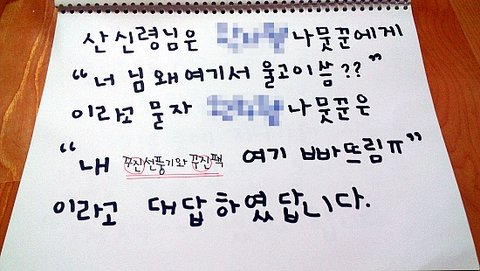 산신령님은 나뭇꾼에게
“너 님 왜 여기서 울고이씀??”
이라고 묻자 나뭇꾼은
“내 꾸진선풍기와 꾸진팩 여기 빠뜨림ㅠ”
이라고 대답하였답니다.